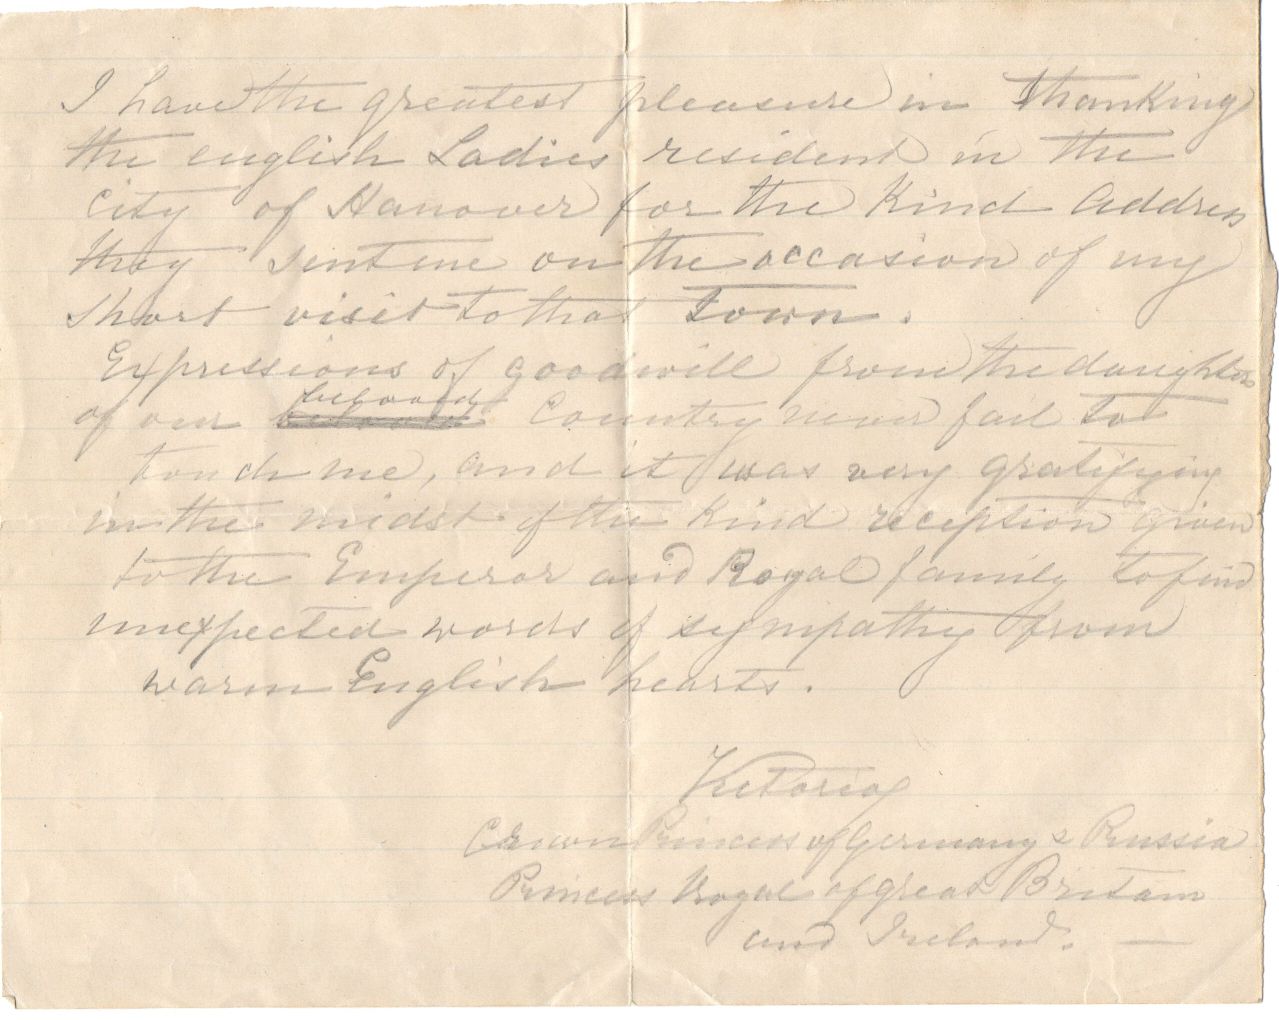 I have the greatest pleasure in thanking
the english Ladies resident in the
city of Hanover for the Kind address
they sent me on the occasion of my
short visit to that town.
Expressions of goodwill from the daughters
beloved
of our country never fail to
touch me, and it was very gratifying
in the midst of the kind reception given
to the Emperor and Royal family to find
unexpected words of sympathy from
warm English hearts.
Victoria
Crown Princess of Germany & Prussia
Princess Royal of great Britain
and Ireland. —